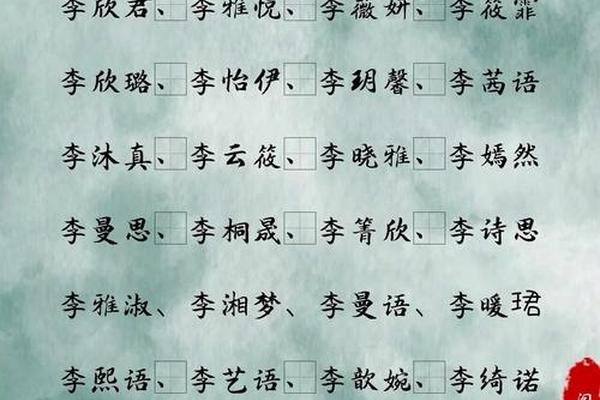 李欣君、李雅悦、李薇妍、李筱霏
李欣璐、李怡伊、李玥馨、李茜语
李沐真、李云筱、李晓雅、李嫣然
李曼思、李桐晟、李箐欣、李诗思
李雅淑、李湘梦、李曼语、李暖珺
李熙语、李艺语、李歆婉、李绮诺